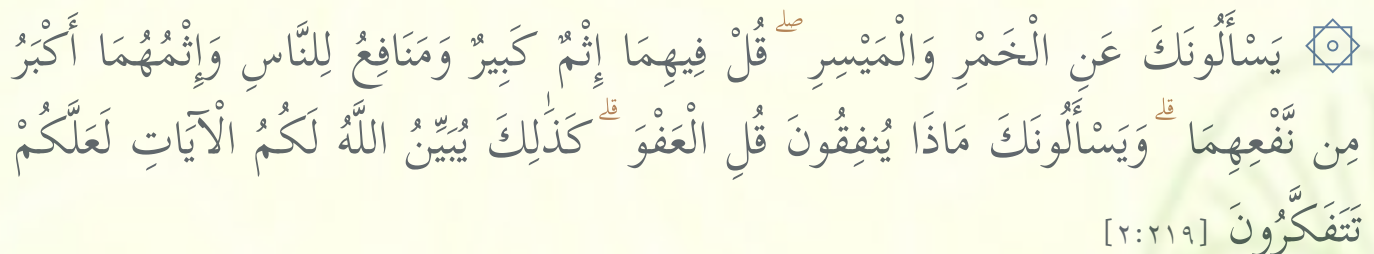 ۞ يَسْأَلُونَكَ عَنِ الْخَمْرِ وَالْمَيْسِرِ ۖ قُلْ فِيهِمَا إِثْمٌ كَبِيرٌ وَمَنَافِعُ لِلنَّاسِ وَإِثْمُهُمَا أَكْبَرُ
مِن نَّفْعِهِمَا ۗ وَيَسْأَلُونَكَ مَاذَا يُنفِقُونَ قُلِ الْعَفْوَ ۗ كَذَٰلِكَ يُبَيِّنُ اللَّهُ لَكُمُ الْآيَاتِ لَعَلَّكُمْ
تَتَفَكَّرُونَ [٢:٢١٩]